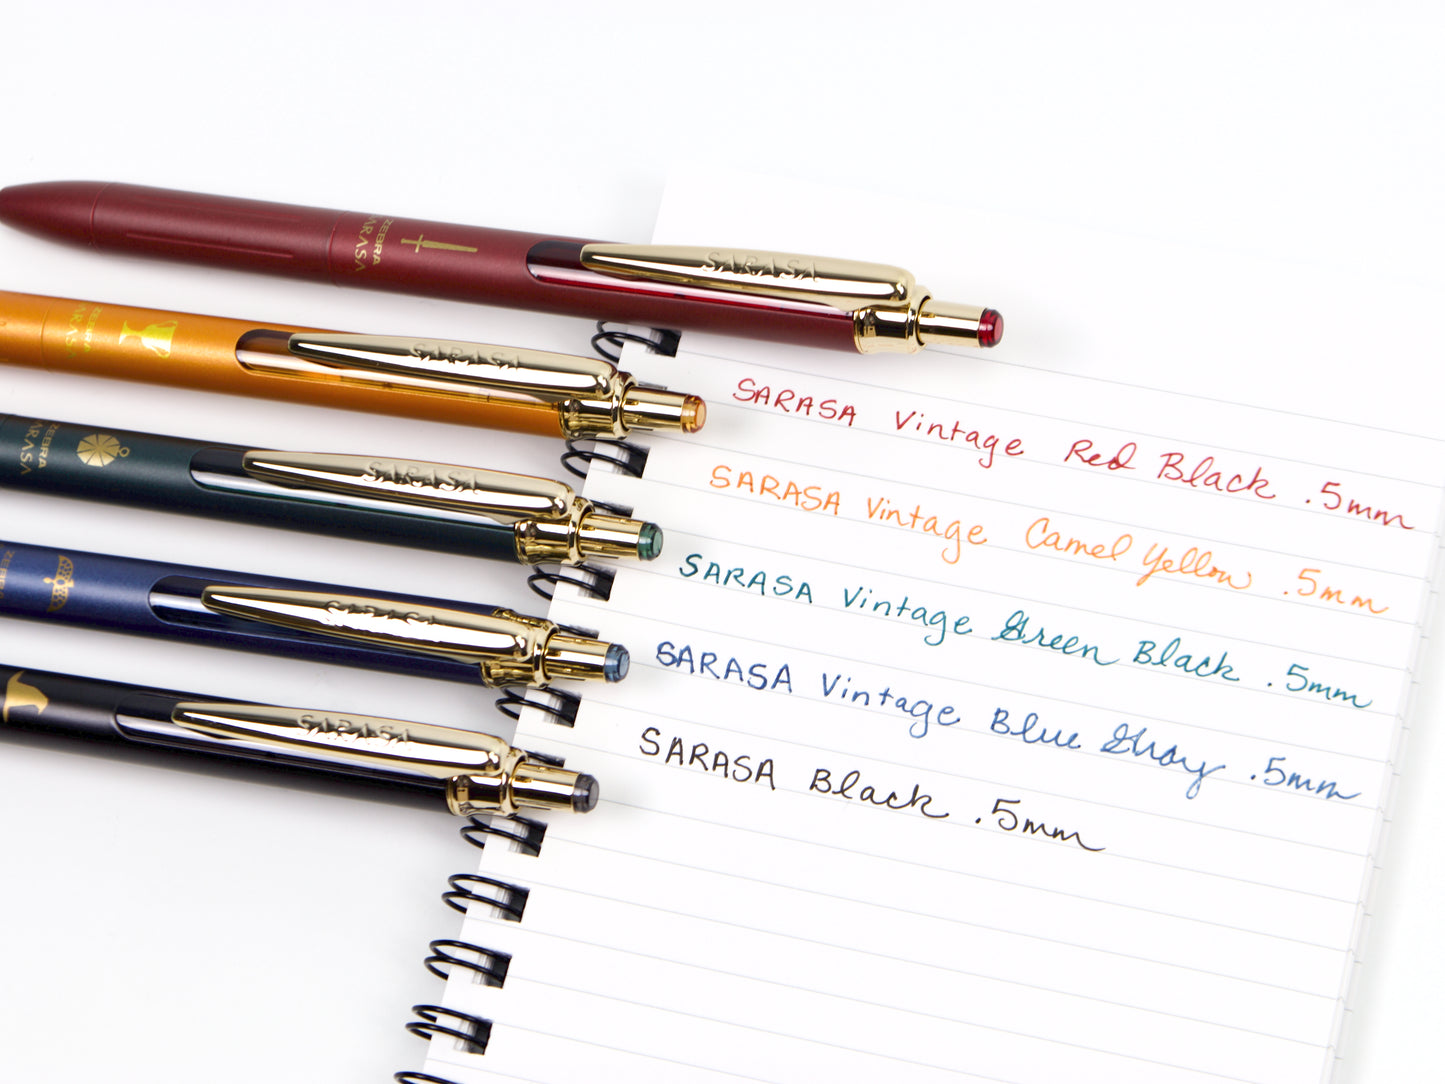 ZEBRA
SARASA
SARASA
ZEBRA
SARASA
SARASA
ZEBRA
SARASA
SARASA
ZEBRA
SARASA
SARASA
SARASA Vintage Red Black .5mm
SARASA Vintage Camel Yellow .5mm
SARASA Vintage Green Black .5mm
SARASA Vintage Blue Gray .5mm
SARASA Black .5mm